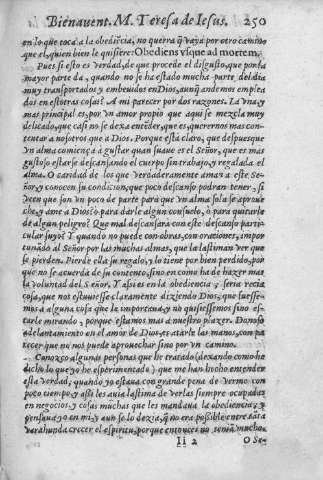 Bienauent. M. Teresa de Iesus. 250
en lo que toca a la obediẽcia, no querra q̃ vaya por otro camino
que el, quien bien le quisiere: Obediens vsque ad mortem.
Pues si esto es verdad, de que procede el disgusto, que por la
mayor parte da, quando no se ha estado mucha parte del dia
muy transportados y embeuidos en Dios, aunq̃ andemos emplea
dos en estotras cosas? A mi parecer por dos razones. La vna, y
mas principal es, por vn amor propio que aqui se mezcla muy
delicado, que casi no se dexa entẽder, que es, querernos mas con-
tentar a nosotros que a Dios. Porque està claro, que despues que
vn alma comiença à gustar quan suaue es el Señor, que es mas
gustoso estarse descansando el cuerpo sin trabajo, y regalada el
alma. O caridad de los que verdaderamente aman a este Se-
ñor, y conocen su condicion, que poco descanso podran tener, si
veen que son vn poco de parte para que vn alma sola se aproue
che, y ame a Dios! ò para darle algun consuelo, ò para quitarle
de algun peligro? Que mal descansarà con este descanso parti-
cular suyo? Y quando no puede con obras, con oracion, impor
tunãdo al Señor por las muchas almas, que la lastiman ver que
se pierden. Pierde ella su regalo, y lo tiene por bien perdido, por
que no se acuerda de su contento, sino en como ha de hazer mas
la voluntad del Señor. Y assi es en la obediencia, seria recia
cosa, que nos estuuiesse claramente diziendo Dios, que fuesse-
mos a alguna cosa que le importa, y no quisiessemos sino es-
tarle mirando, porque estamos mas a nuestro plazer. Donoso
adelantamiento en el amor de Dios, es atarle las manos, con pa
recer que no nos puede aprouechar sino por vn camino.
Conozco algunas personas que he tratado (dexando como he
dicho lo que yo he esperimentado) que me han hecho entender
esta verdad, quando yo estaua con grande pena de verme con
poco tiempo, y assi les auia lastima de verlas siempre ocupadas
en negocios, y cosas muchas que les mandaua la obediencia, y
pensaua yo en mi, y aun se lo dezia, q̃ no era possible entre tãta
varahunda crecer el espiritu, porque entonces no tenian mucho.
Ii 2 O Se-